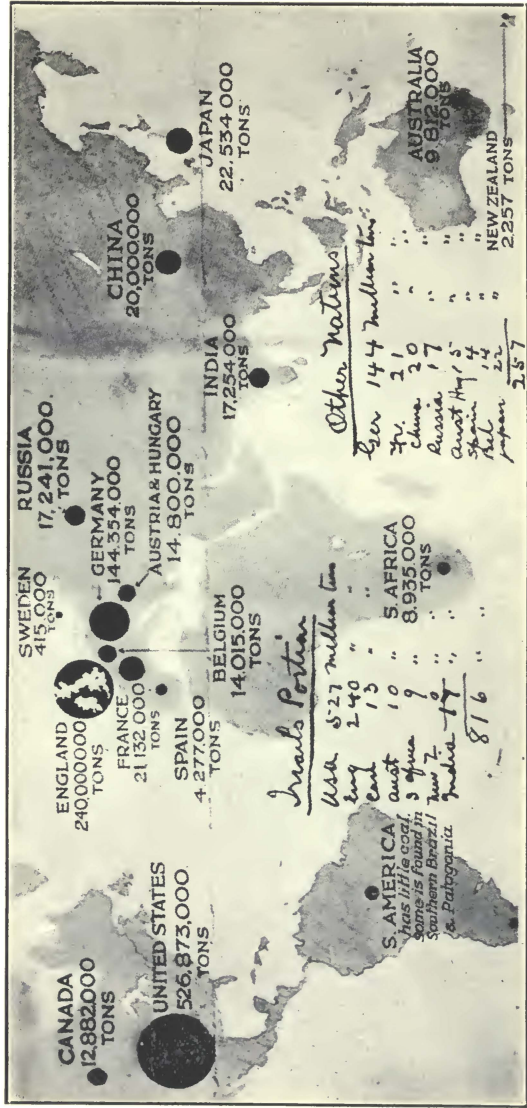 CANADA
12,882,000
TONS
UNITED STATES
526,873,000
TONS
S. AMERICA
has little coal.
some is found in
Southern Brazil
& Patagonia
ENGLAND
240,000,000
TONS
FRANCE
21,132,000
TONS
SPAIN
4,277,000
TONS
BELGIUM
14,015,000
TONS
SWEDEN
415,000
TONS
RUSSIA
17,241,000.
TONS
GERMANY
144.354.000
TONS
AUSTRIA & HUNGARY
14.800.000
TONS
S. AFRICA
8.935.000
TONS
INDIA
17,254,000
TONS
CHINA
20,000,000
TONS
JAPAN
22.534 000
TONS
AUSTRALIA
9 812.000
TONS
NEW ZEALAND
2.257 TONS
Israels Portion
USA 527 million tons
Eng 240 " "
Can 13 " "
Aust 10 " "
S Africa 9 " "
New Z. " "
India 17 " "
816 " "
Other Nations
Ger 144 million tons
Fr. 21 " "
China 20 " "
Russia 17 " "
Aust Hg 15 " "
Spain 4 " "
Bel 14 " "
Japan 22 " "
257